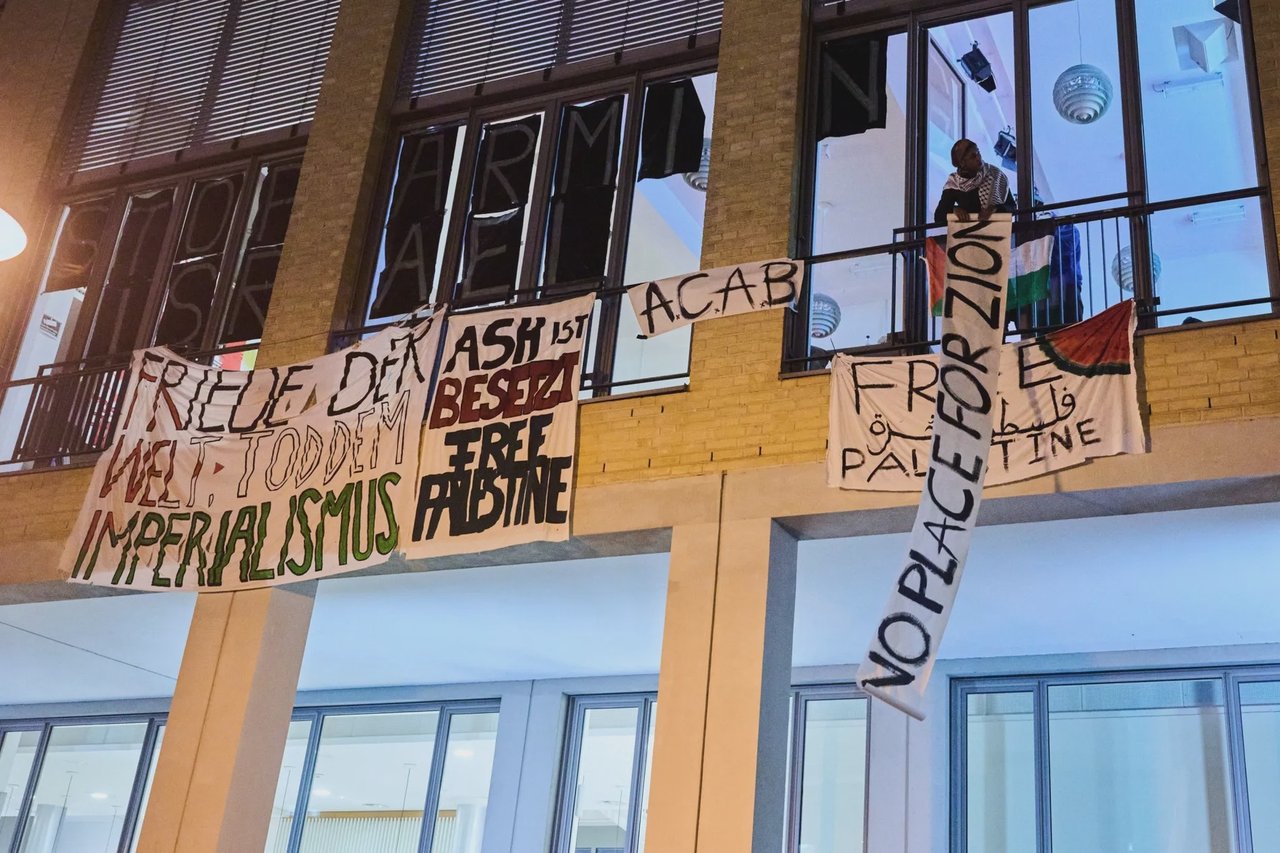 STOP ARMIN
ISRAEL
FRIEDE DER
WELT, TOD DEM
IMPERIALISMUS
ASH IST
BESETZT
FREE
PALESTINE
A.C.A.B
NO PLACE FOR ZION
FREE
PALESTINE